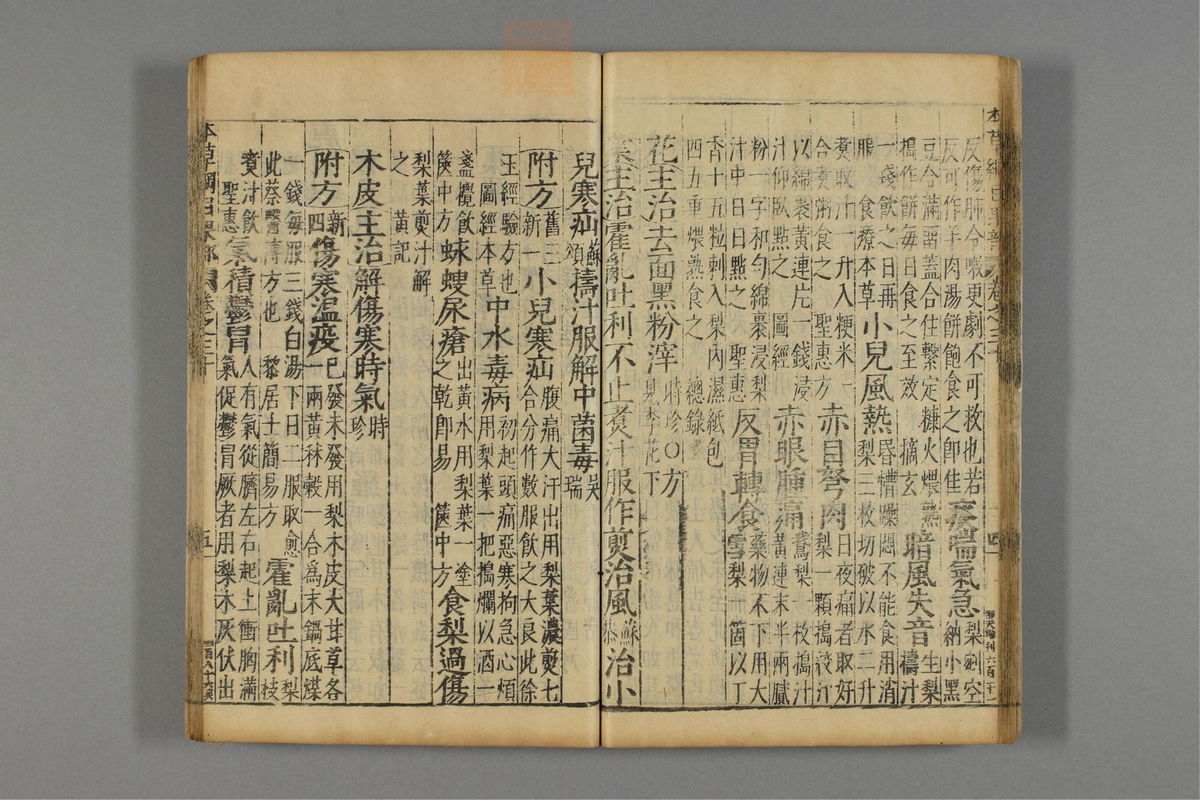 反傷肺令嗽更劇不可救也若
反可作羊肉湯餅飽食之即佳 痰喘氣急 梨剜空納小黑
豆令滿留蓋合住繫定糠火煨熟
搗作餅每日食之至效 摘玄 暗風失音 生梨搗汁
一錢飲之日再
服食療本草 小兒風熱 昏懵躁悶不能食用消梨三枚切破以水二升
煮取汁一升入粳米一
合煮粥食之 聖惠方 赤目弩肉 日夜痛者取好梨一顆搗絞汁
以綿裹黃連片一錢浸
汁仰臥點之 圖經 赤眼腫痛 鵞梨一枚搗汁黃連末半兩膩
粉一字和勻綿裹浸梨
汁中日日點之 聖惠 反胃轉食 藥物不下用大雪梨一箇以丁
香十五粒刺入梨內濕紙包
四五重煨熟食之 總錄
花主治去面黑粉滓 時珍○方見李花下
葉主治霍亂吐利不止煮汁服作煎治風 蘇恭 治小
兒寒疝 蘇頌 擣汁服解中菌毒 吳瑞
附方 舊三新一 小兒寒疝 腹痛大汗出用梨葉濃煎七合分作數服飲之大良此徐
王經驗方也
圖經本草 中水毒病 初起頭痛惡寒拘急心煩用梨葉一把搗爛以酒一
盞攪飲
篋中方 蠼螋尿瘡 出黃水用梨葉一塗之乾即易 篋中方 食梨過傷
梨葉煎汁解
之 黃記
木皮主治解傷寒時氣 時珍
附方 新四 傷寒溫疫 已發未發用梨木皮大甘草各一兩黃秫穀一合為末鍋底煤
一錢每服三錢白湯下日二服取愈
此蔡醫博方也 黎居士簡易方 霍亂吐利 梨枝
煮汁飲
聖惠 氣積鬱冒 人有氣從臍左右起上衝胸滿氣促鬱冒厥者用梨木灰伏出